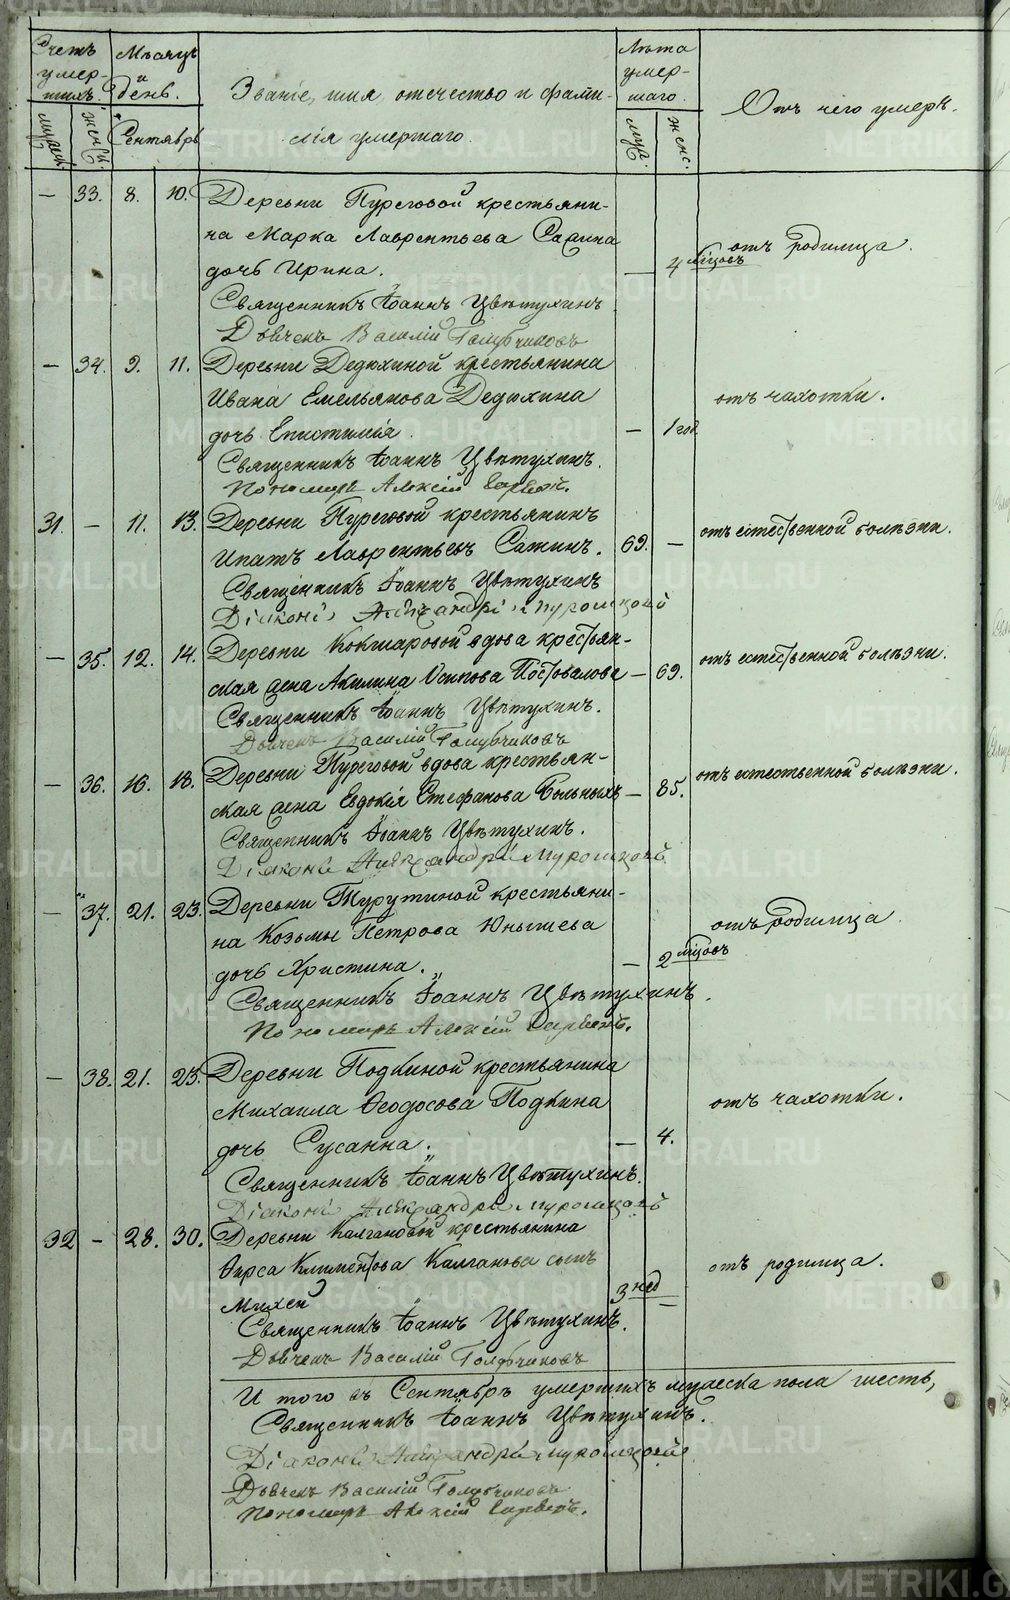 Счетъ умер-
шихъ.
Мѣсяцъ
и
день.
Званіе, имя, отечество и фами-
лія умершаго.
Лѣта
умер-
шаго.
Отъ чего умеръ.
мужес.
женс.
Сентябрь
муж.
женс.
— 33. 8. 10. Деревни Пуреговой крестьяни-
на Марка Лаврентьева Сажина
дочь Ирина. — 4 мѣсцовъ отъ родимца.
Священникъ Іоаннъ Цвѣтухинъ
Дьячекъ Василій Голубчиковъ
— 34. 9. 11. Деревни Дедюхиной крестьянина
Ивана Емельянова Дедюхина отъ чахотки.
дочь Епистимія. — 1 год
Священникъ Іоаннъ Цвѣтухинъ.
Пономарь Алексій
31. — 11. 13. Деревни Пуреговой крестьянинъ отъ естественной болѣзни.
Ипатъ Лаврентьевъ Сажинъ. 69. —
Священникъ Іоаннъ Цвѣтухинъ
Діаконъ Александръ
— 35. 12. 14. Деревни Кокшаровой вдова крестьян- отъ естественной болѣзни.
ская жена Акилина Осипова Постовалова — 69.
Священникъ Іоаннъ Цвѣтухинъ.
Дьячекъ Василій Голубчиковъ
— 36. 16. 18. Деревни Пуреговой вдова крестьян- отъ естественной болѣзни.
ская жена Евдокія Стефанова Больныхъ — 85.
Священникъ Іоаннъ Цвѣтухинъ.
Діаконъ Александръ
— 37. 21. 23. Деревни Турутиной крестьяни-
на Козьмы Петрова Юнышева отъ родимца.
дочь Христина. — 2 мѣсцовъ
Священникъ Іоаннъ Цвѣтухинъ.
Пономарь Алексій
— 38. 21. 23. Деревни Подкиной крестьянина
Михаила Ѳеодосова Подкина отъ чахотки.
дочь Сусанна. — 4.
Священникъ Іоаннъ Цвѣтухинъ.
Діаконъ Александръ
32 — 28. 30. Деревни Калгановой крестьянина
Ѳирса Климентова Калганова сынъ отъ родимца.
Михей 3 нед —
Священникъ Іоаннъ Цвѣтухинъ.
Дьячекъ Василій Голубчиковъ
И того въ Сентябрѣ умершихъ мужеска пола шесть,
Священникъ Іоаннъ Цвѣтухинъ.
Діаконъ Александръ
Дьячекъ Василій Голубчиковъ
Пономарь Алексій
METRIKI.GASO-URAL.RU